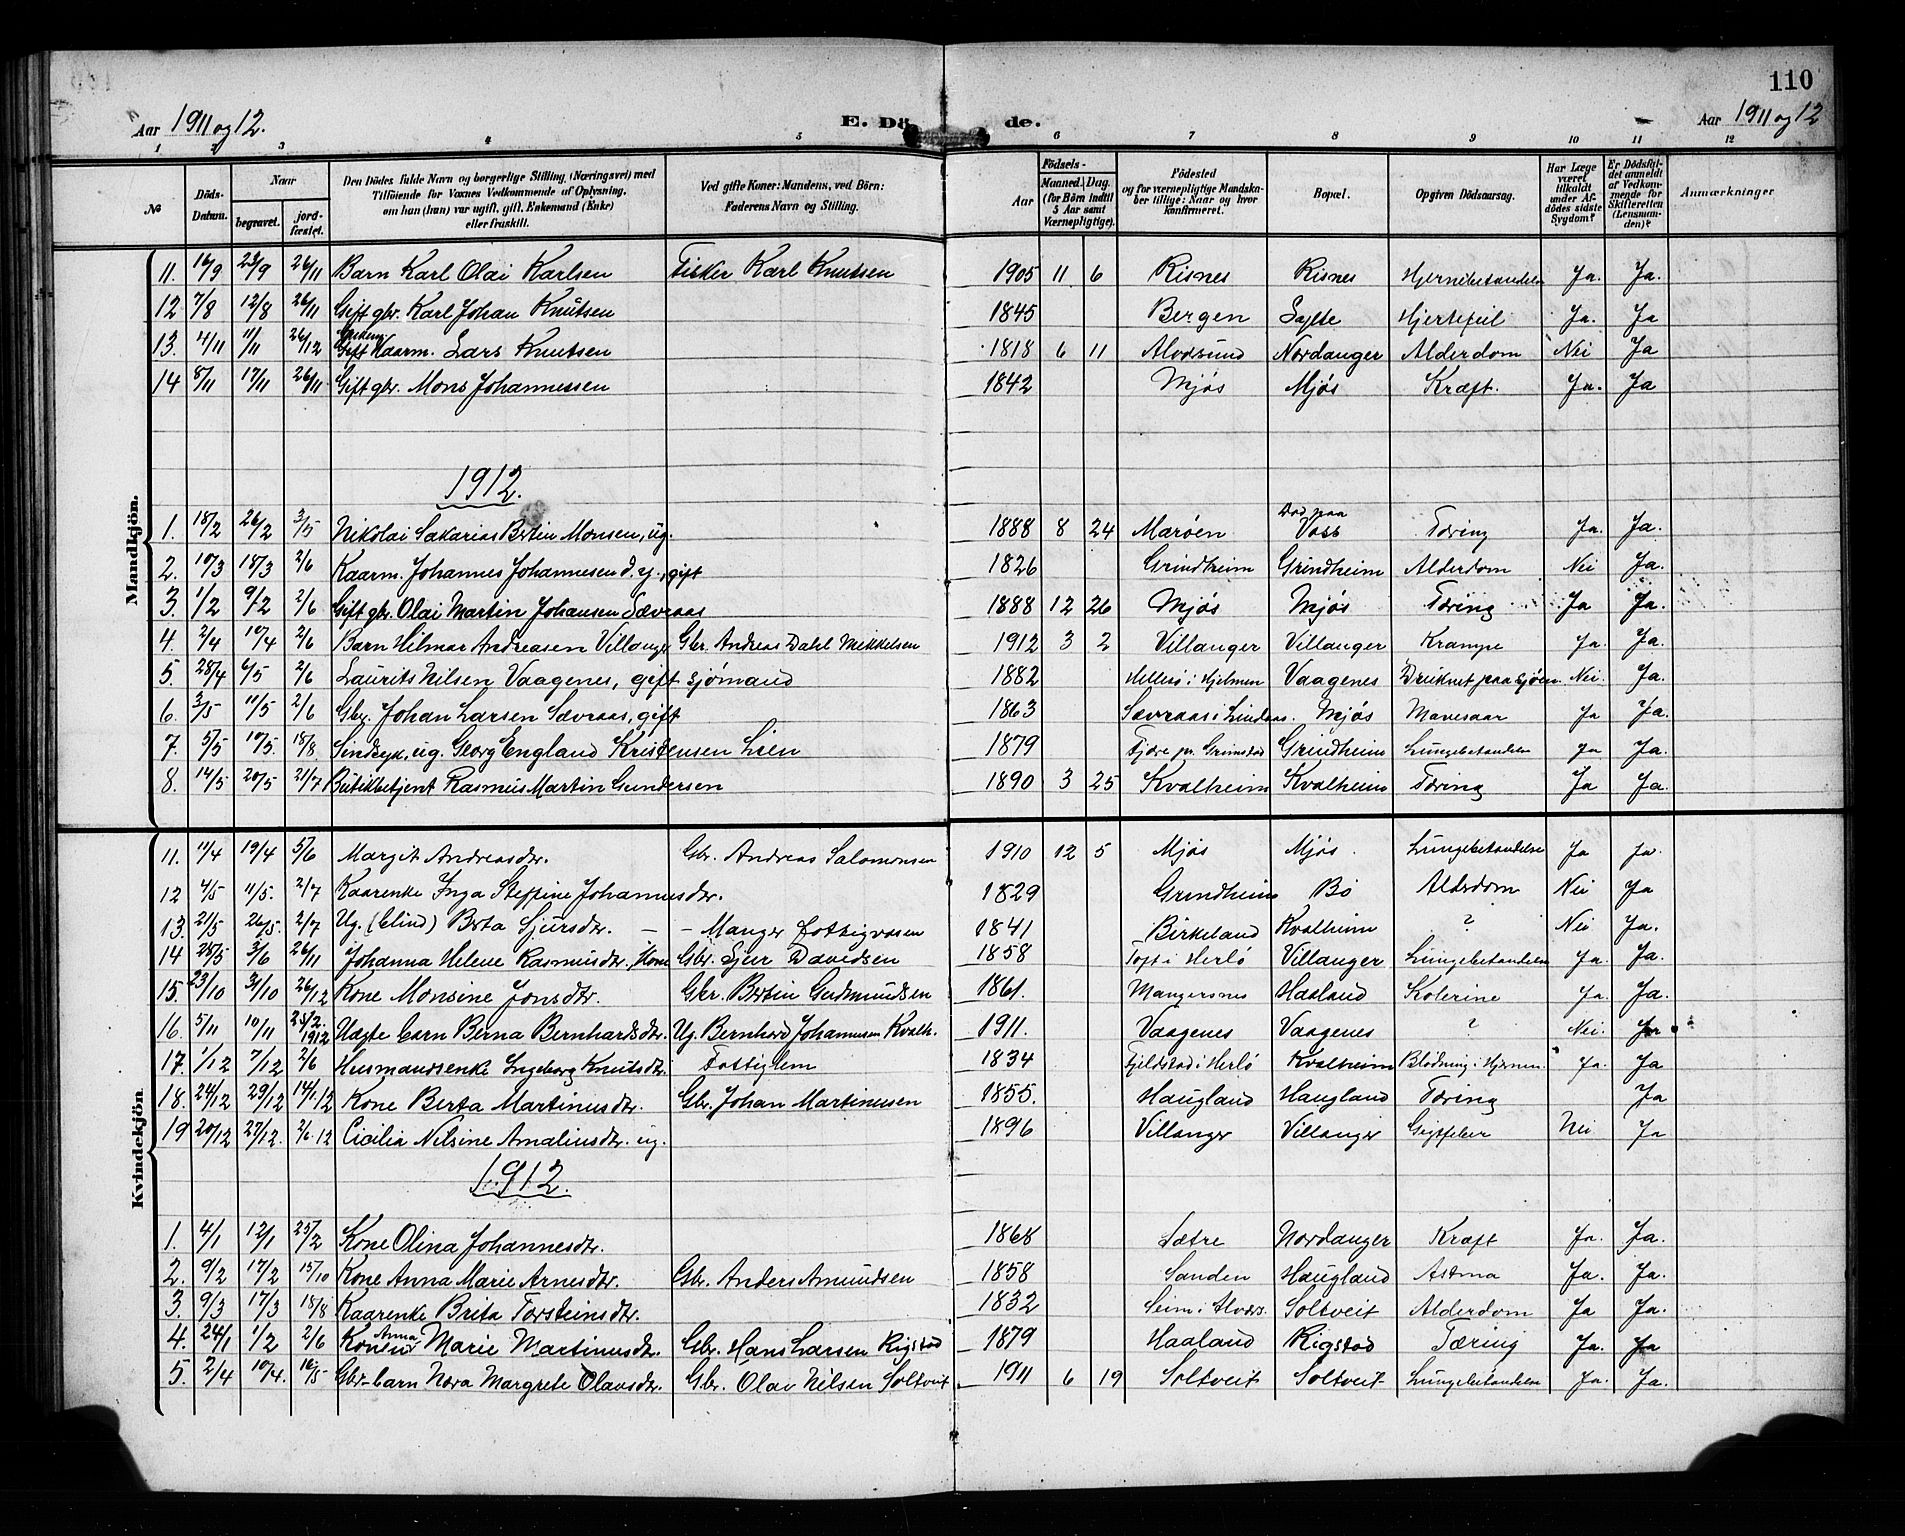 110
Aar 1911 og 12. E. Dö de. Aar 1911 og 12
1 2 3 4 5 6 7 8 9 10 11 12
№ Döds-Datum. Naar begravet. jord-fæstet. Den Dödes fulde Navn og borgerlige Stilling, (Næringsvei) med Tilföiende for Voxnes Vedkommende af Oplysning, om han (hun) var ugift, gift, Enkemand (Enke) eller fraskilt. Ved gifte Koner: Mandens, ved Börn: Faderens Navn og Stilling. Födsels- Aar Maaned. Dag. (for Börn indtil 5 Aar samt Værnepligtige). Födested og for værnepligtige Mandskaber tillige: Naar og hvor konfirmeret. Bopæl. Opgiven Dödsaarsag. Har Læge været tilkaldt under Afdödes sidste Sygdom? Er Dödsfaldet anmeldt af Vedkommende for Skifteretten (Lensmanden)? Anmærkninger
Mandkjön.
11. 16/9 23/9 26/11 Barn Karl Olai Karlsen Fisker Karl Knutsen 1905 11 6 Risnes Risnes Hjernebetændelse Ja. Ja.
12 7/8 12/8 26/11 Gift gbr. Karl Johan Knutsen 1845 Bergen Sylte Hjertefeil Ja. Ja
13. 4/11 11/11 26/12 Gift Kaarm. Lars Knutsen 1818 6 11 Alvdsund Nordanger Alderdom Nei Ja
14 8/11 17/11 26/11 Gift gbr. Mons Johannessen 1842 Mjøs Mjøs Kræft. Ja. Ja
1912.
1. 18/2 26/2 3/5 Nikolai Sakarias Bertin Monsen, ug. 1888 8 24 Marøen Død paa Voss Tæring Ja. Ja.
2. 10/3 18/3 2/6 Kaarm. Johannes Johannesen d. y., gift 1826 Grindheim Grindheim Alderdom Nei Ja.
3. 1/2 9/2 2/6 Gift gbr. Olai Martin Johansen Sævraas 1888 12 26 Mjøs Mjøs Tæring Ja Ja.
4. 2/4 10/4 2/6 Barn Hilmar Andreasen Villanger Gbr. Andreas Dahl Mikkelsen 1912 3 2 Villanger Villanger Krampe Ja Ja.
5. 28/4 6/5 2/6 Laurits Nilsen Vaagenes, gift sjømand 1882 Hellesø i Hjelmen Vaagenes Druknet paa sjøen. Nei. Ja.
6. 3/5 11/5 2/6 Gbr. Johan Larsen Sævraas, gift 1863 Sævraas i Lindaas. Mjøs Mavesaar Ja Ja.
7. 5/5 10/5 18/8 Sindssyk, ug. Georg England Kristensen Lien 1879 Fjære pr. Grimstad Grindheim Lungebetændelse Ja Ja.
8. 14/5 20/5 21/7 Butikbetjent Rasmus Martin Gundersen 1890 3 25 Kvalheim Kvalheim Tæring Ja Ja.
Kvindekjön
11. 11/4 19/4 5/6 Margit Andreasdtr. Gbr. Andreas Salomonsen 1910 12 5 Mjøs Mjøs. Lungebetændelse Ja Ja.
12 4/5 11/5. 2/7 Kaarenke Inga Steffine Johannesdtr. 1829 Grindheim Bø Alderdom Nei Ja
13. 21/5 26/5. 2/7 Ug. (blind) Berta Sjursdtr. — - Manger fattigvæsen 1841 Birkeland Kvalheim ? Nei Ja.
14 28/5 3/6 26/11 Johanna Helene Rasmusdtr., Kone Gbr. Sjur Davidsen 1858 Toft i Herlø Villanger Lungebetændelse Ja. Ja.
15. 23/10 31/10 26/12 Kone Monsine Jonsdtr. Gbr. Bertin Gudmundsen 1861. Mangersnes Haaland Kolerine Ja. Ja.
16. 5/11 10/11 25/2. 1912 Uægte barn Berna Bernhardsdtr. Ug. Bernhard Johannesen Kvalh. 1911. Vaagenes Vaagenes ? Nei. Ja
17. 1/12 7/12 2/6 Husmandsenke Ingeborg Knutsdtr. Fattiglem 1834 Fjeldstad i Herlø Kvalheim Blødning i Hjernen. Ja. Ja
18. 24/12 29/12 14/1.12 Kone Berta Martinusdtr. Gbr. Johan Martinusen 1855. Haugland Haugland Tæring Ja
19 20/12 27/12. 2/6.12 Cicilia Nilsine Amaliusdtr. ug. 1896 Villanger Villanger Gigtfeber Nei Ja
1912.
1. 4/1 12/1 25/2 Kone Olina Johannesdtr. 1868 Sætre Nordanger Kræft Ja. Ja.
2. 9/2 17/2 15/10 Kone Anna Marie Arnesdtr. Gbr. Anders Amundsen 1858 Sanden Haugland Astma Ja. Ja.
3. 9/3 17/3 18/8 Kaarenke Brita Torsteinsdtr. 1832 Seim i Alvers. Soltveit Alderdom Ja Ja.
4. 24/1 1/2 2/6 Konen Anna Marie Martinusdtr. Gbr. Hans Larsen Rigstad 1879 Haaland Rigstad Tæring Ja. Ja
5. 2/4 10/4. 16/5 Gbr-barn Nora Margrete Olavsdtr. Gbr. Olav Nilsen Soltveit 1911 6 19 Soltveit Soltveit Lungebetændelse Ja. Ja.